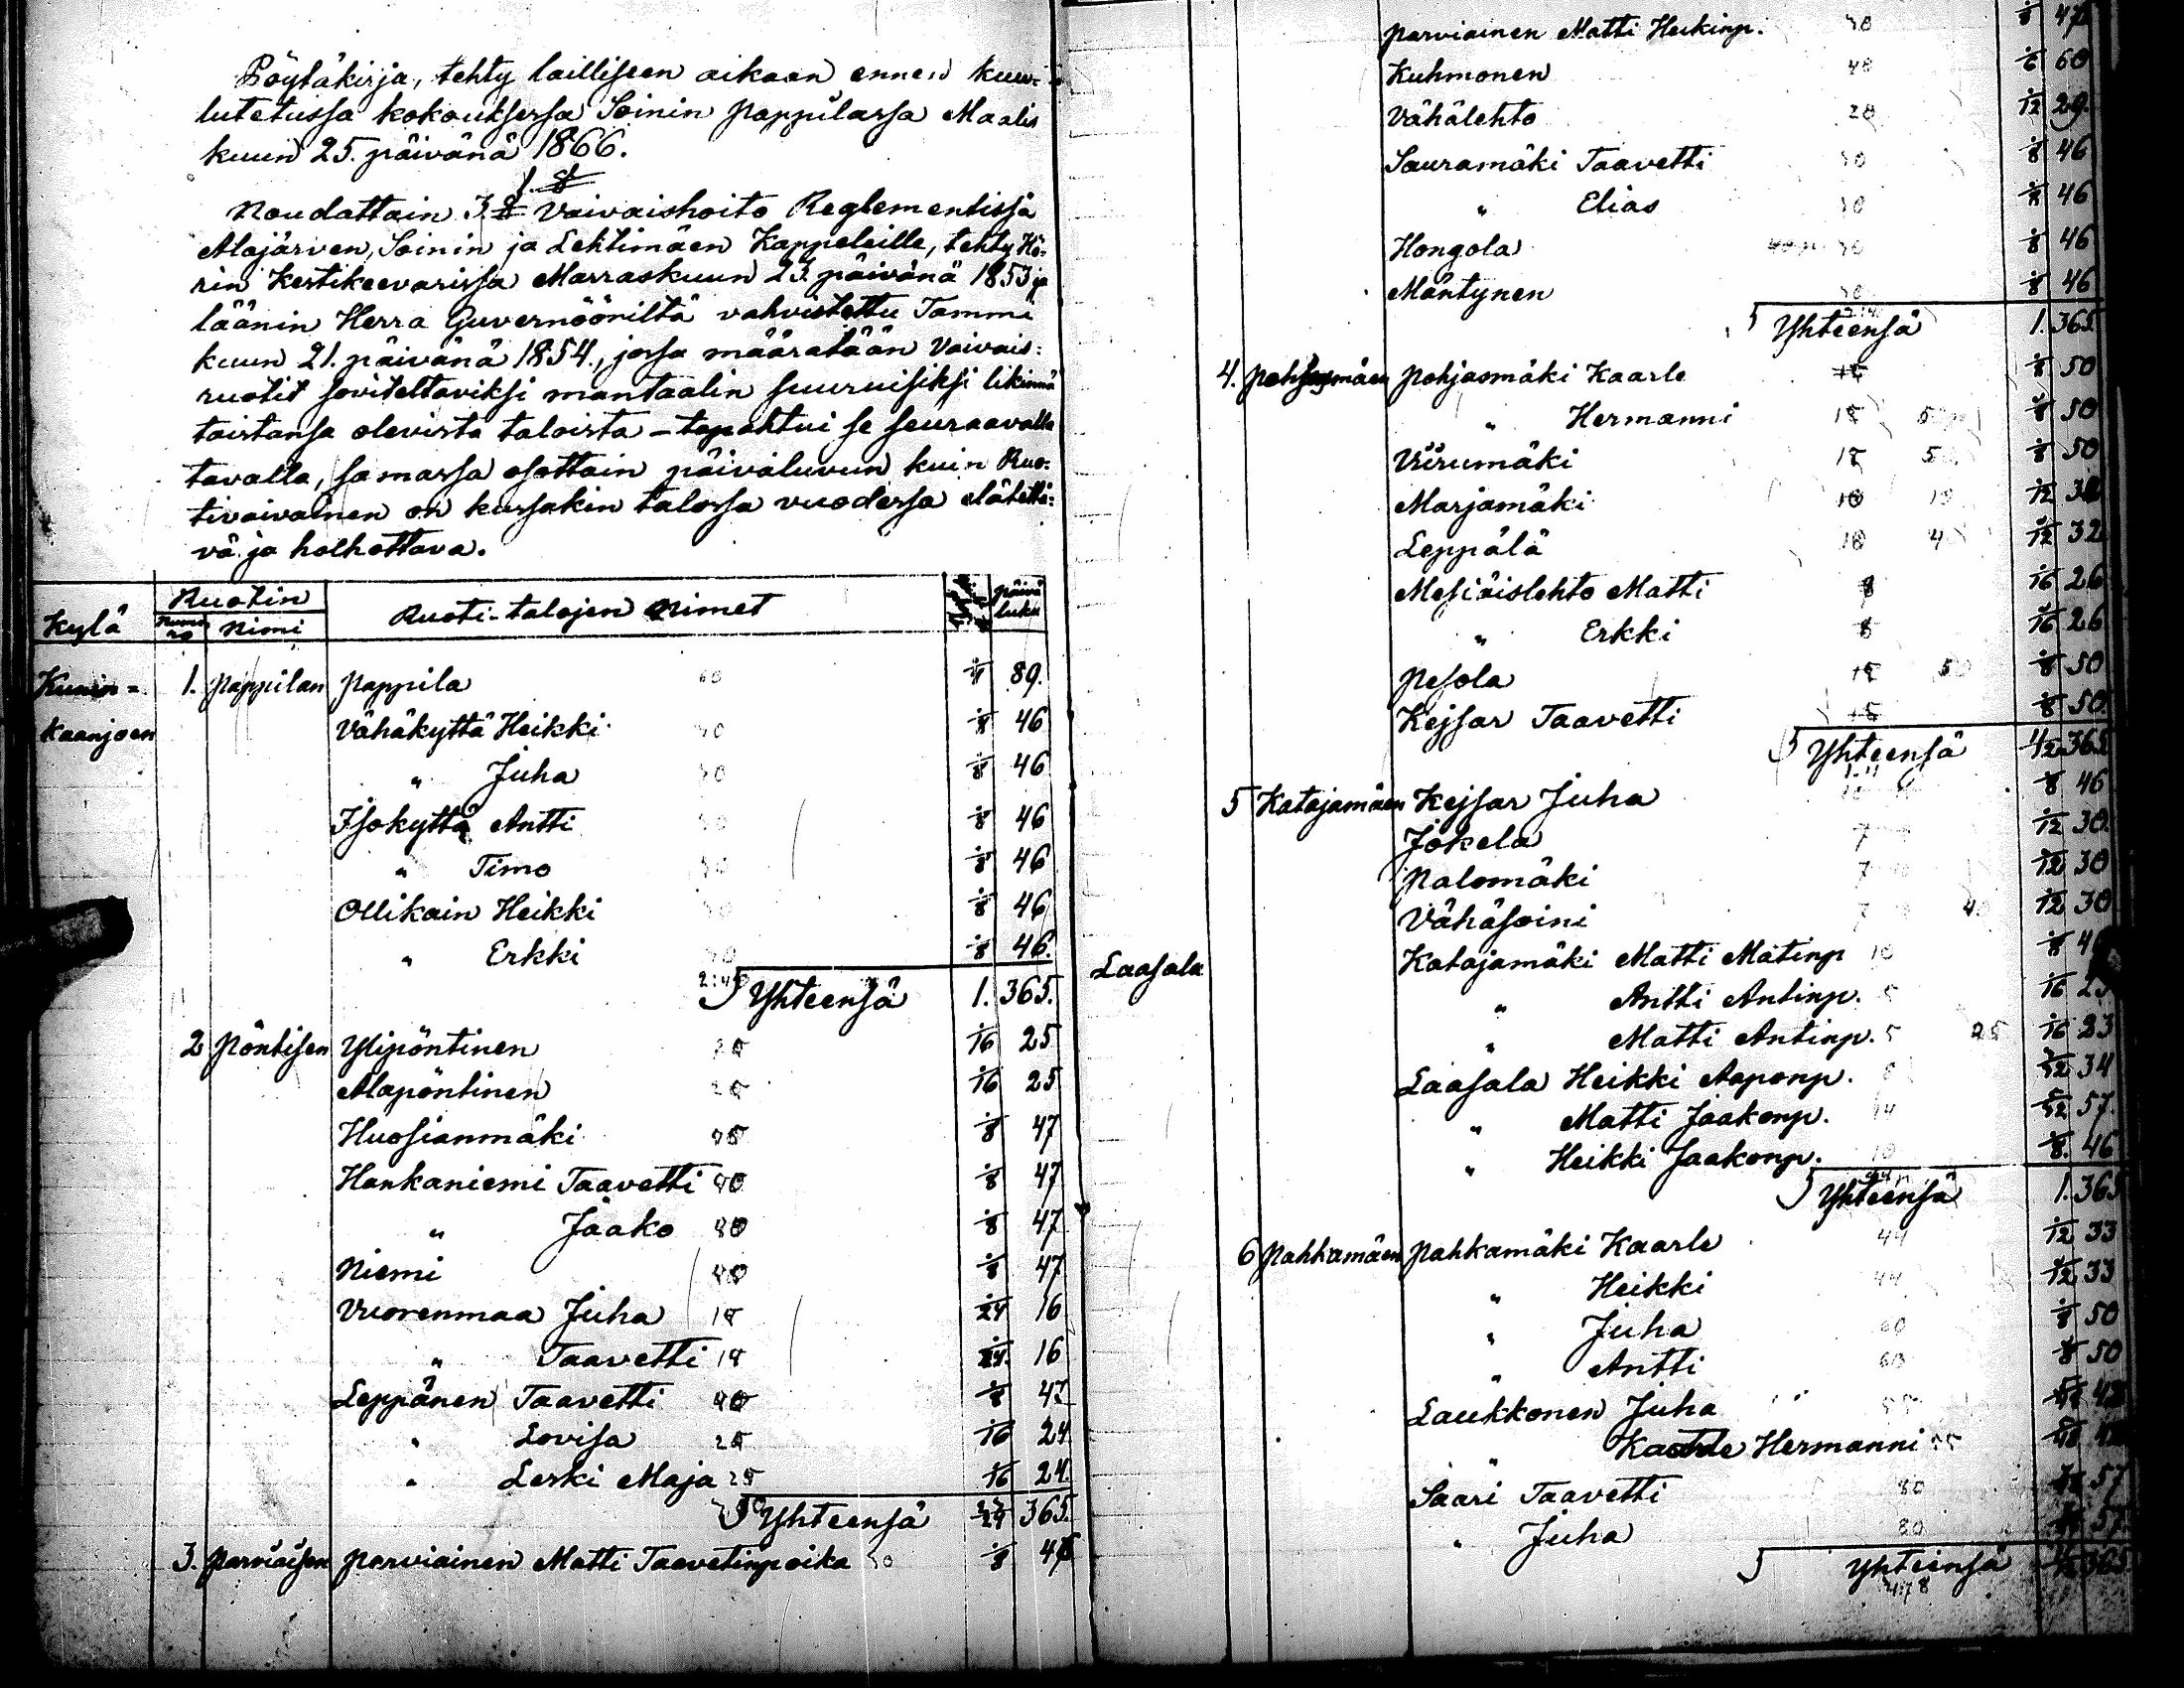 Pöytäkirja, tehty lailliseen aikaan ennen kuu-
lutetussa kokouksessa Soinin pappilassa Maalis
kuun 25. päivänä 1866.
1. §
Noudattain 3 § Vaivaishoito Reglementissä
Alajärven, Soinin ja Lehtimäen Kappeleille, tehty Hö-
rin Kestikeevarissa Marraskuun 23. päivänä 1853 ja
läänin Herra Guvernööriltä vahvistettu Tammi
kuun 21. päivänä 1854., jossa määrätään Vaivais:
ruotit soviteltaviksi mantaalin suuruisiksi likinnä
toistansa olevista taloista – tapahtui se seuraavalla
tavalla, samassa osottain päiväluvun kuin Ruo-
tivaivainen on kussakin talossa vuodessa elätettä-
vä ja holhottava.
Kylä Ruotin Numero Nimi Ruoti-talojen nimet päivä luku
Kunin= 1. Pappilan Pappila 1/4 89.
kaanjoen Vähäkyttä Heikki 1/8 46
" Juha 1/8 46
Isokyttä Antti 1/8 46
" Timo 1/8 46
Ollikain Heikki 1/8 46
" Erkki 1/8 46.
Yhteensä 1. 365.
2 Pöntisen Ylipöntinen 1/16 25
Alapöntinen 1/16 25
Huosianmäki 1/8 47
Hankaniemi Taavetti 40 1/8 47
" Jaako 40 1/8 47
Niemi 40 1/8 47
Vuorenmaa Juha 1/24 16
" Taavetti 1/24. 16
Leppänen Taavetti 40 1/8 47
" Lovisa 1/16 24
" Leski Maja 25 1/16 24.
Yhteensä 365.
3. Parviaisen Parviainen Matti Taavetinpoika 1/8 47
Parviainen Matti Heikinp. 1/8 47
Kuhmonen 1/6 60
Vähälehto 1/12 29.
Sauramäki Taavetti 1/8 46
" Elias 1/8 46
Hongola 1/8 46
Mäntynen 1/8 46
Yhteensä 1. 365
4. Pohjasmäen Pohjasmäki Kaarle 1/8 50
" Hermanni 1/8 50
Viirumäki 1/8 50
Marjamäki 10 1/12
Leppälä 10 1/12 32
Mesiäislehto Matti 8 1/16 26
" Erkki 8 1/16 26
Pesola 1/8 50
Kejsar Taavetti 1/8 50.
Yhteensä 365
5 Katajamäen Kejsar Juha 1/8 46
Jokela 7 1/12 30.
Palomäki 7 1/12 30
Vähäsoini 7 1/12 30
Katajamäki Matti Matinp 10 1/8 46
Laasala " Antti Antinp. 5 1/16 23
" Matti Antinp. 5 1/16 23
Laasala Heikki Aaponp. 34
" Matti Jaakonp. 57.
" Heikki Jaakonp. 10 1/8. 46
Yhteensä 1. 365
6 Pahkamäen Pahkamäki Kaarle 44 1/12 33
" Heikki 44 1/12 33
" Juha 1/8 50
" Antti 1/8 50
Laukkonen Juha 42
" Kaarle Hermanni
Saari Taavetti 80 57
" Juha 80 57
Yhteensä 365